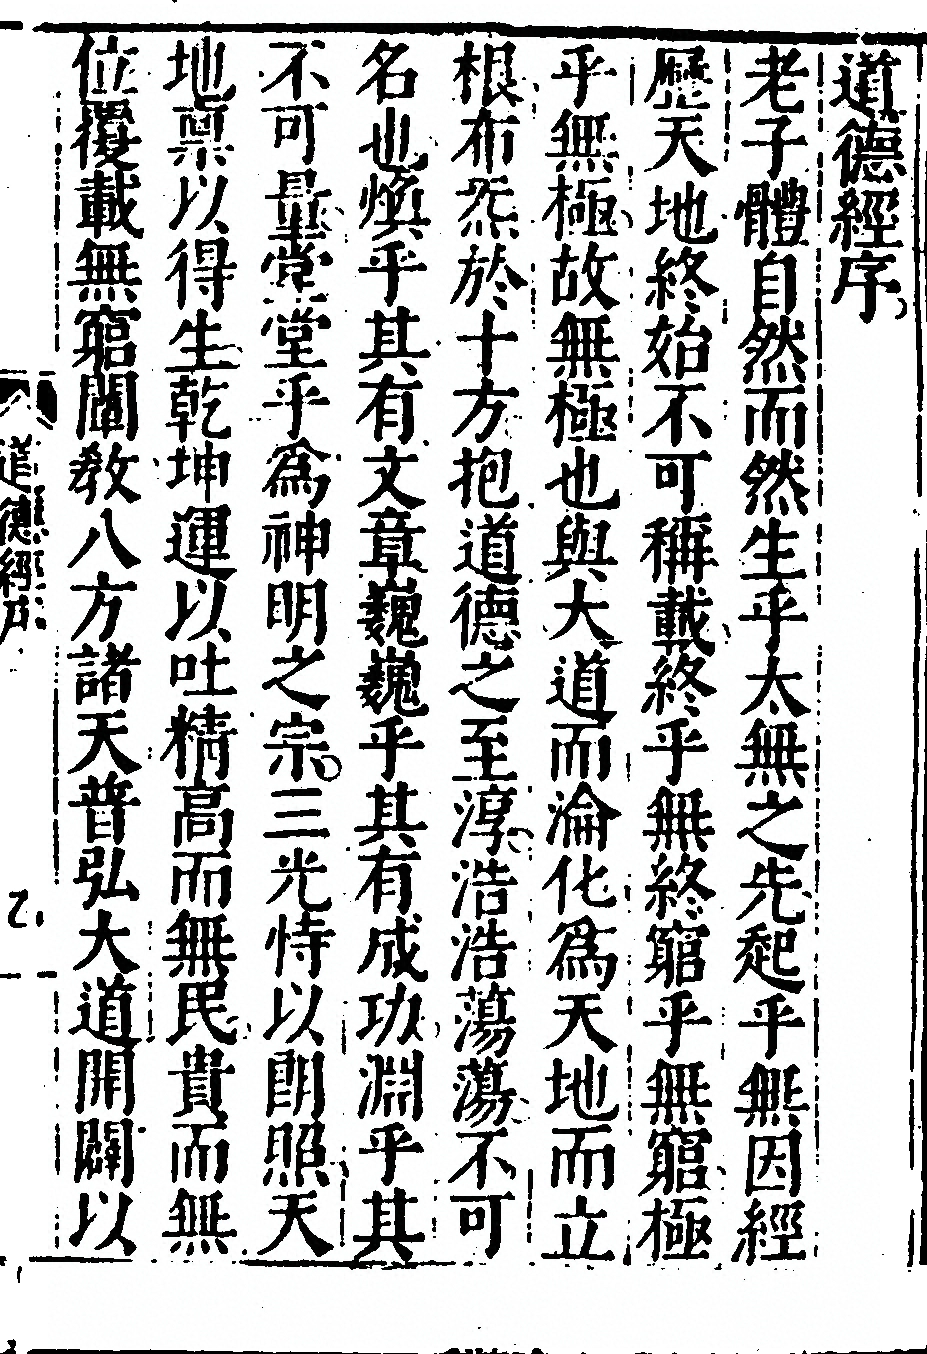 道德經序
老子體自然而然生乎太無之先起乎無因經
歷天地終始不可稱載終乎無終窮乎無窮極
乎無極故無極也與大道而淪化爲天地而立
根布炁於十方抱道德之至淳浩浩蕩蕩不可
名也煥乎其有文章巍巍乎其有成功淵乎其
不可量堂堂乎爲神明之宗三光恃以朗照天
地禀以得生乾坤運以吐精高而無民貴而無
位覆載無窮闡教八方諸天普弘大道開闢以
道德經序
乙